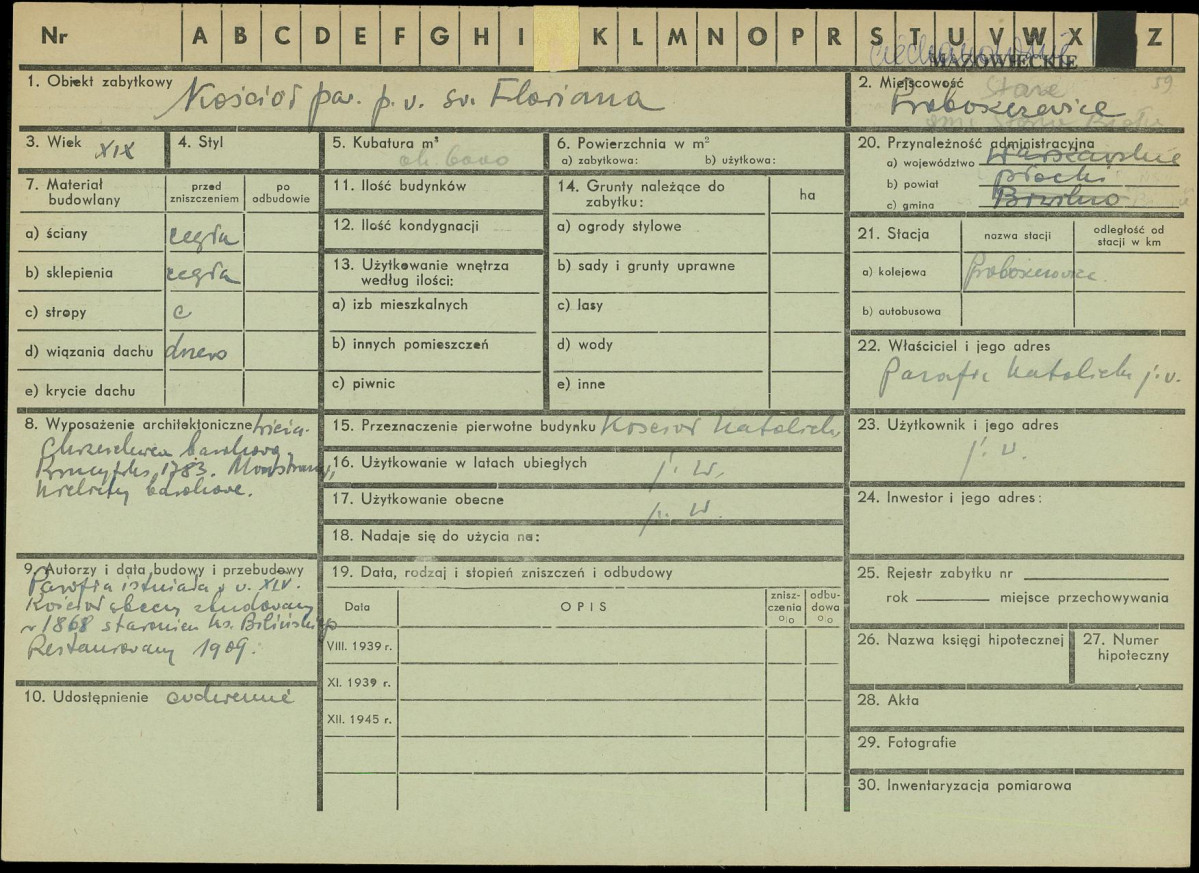 Nr A B C D E F G H I K L M N O P R S T U V W X Z
ciechanowskie
MAZOWIECKIE
1. Obiekt zabytkowy Kościół par. p. w. św. Floriana
2. Miejscowość Stare 59
Proboszczewice
gm. Stara Biała
3. Wiek XIX
4. Styl
5. Kubatura m³
ok. 6000
6. Powierzchnia w m²
a) zabytkowa: b) użytkowa:
20. Przynależność administracyjna
a) województwo Warszawskie
b) powiat płocki
c) gmina Brwilno
7. Materiał budowlany
przed zniszczeniem
po odbudowie
a) ściany cegła
b) sklepienia cegła
c) stropy c
d) wiązania dachu drzewo
e) krycie dachu
11. Ilość budynków
12. Ilość kondygnacji
13. Użytkowanie wnętrza
według ilości:
a) izb mieszkalnych
b) innych pomieszczeń
c) piwnic
14. Grunty należące do
zabytku:
ha
a) ogrody stylowe
b) sady i grunty uprawne
c) lasy
d) wody
e) inne
21. Stacja
nazwa stacji
odległość od
stacji w km
a) kolejowa Proboszczewice
b) autobusowa
22. Właściciel i jego adres
Parafia Katolicka j. w.
8. Wyposażenie architektoniczne
Chrzcielnica barokowa
1783. Monstrancja,
kielichy barokowe.
15. Przeznaczenie pierwotne budynku Kościół Katolicki
16. Użytkowanie w latach ubiegłych j. w.
17. Użytkowanie obecne j. w.
18. Nadaje się do użycia na:
23. Użytkownik i jego adres
j. w.
24. Inwestor i jego adres:
9. Autorzy i data budowy i przebudowy
Parafia istniała w w. XIV.
Kościół obecny zbudowany
w 1868 staraniem ks. Bilińskiego
Restaurowany 1909.
10. Udostępnienie codziennie
19. Data, rodzaj i stopień zniszczeń i odbudowy
Data
OPIS
znisz-
czenia
%
odbu-
dowa
%
VIII. 1939 r.
XI. 1939 r.
XII. 1945 r.
25. Rejestr zabytku nr
rok miejsce przechowywania
26. Nazwa księgi hipotecznej
27. Numer
hipoteczny
28. Akta
29. Fotografie
30. Inwentaryzacja pomiarowa